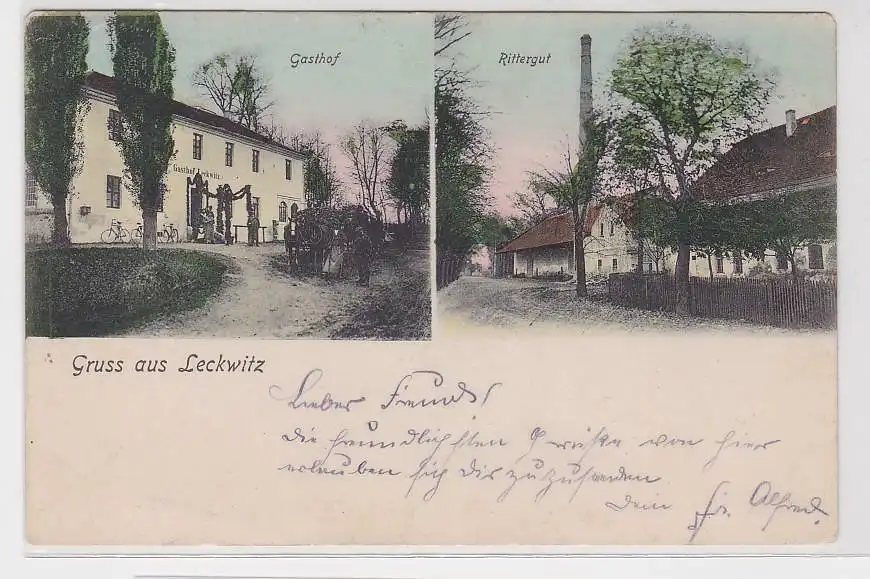 Gasthof
Rittergut
Gasthof Leckwitz
Gruss aus Leckwitz
Lieber Freund!
die freundlichsten Grüße von hier
erlauben sich dir zuzusenden
Dein Alfred.